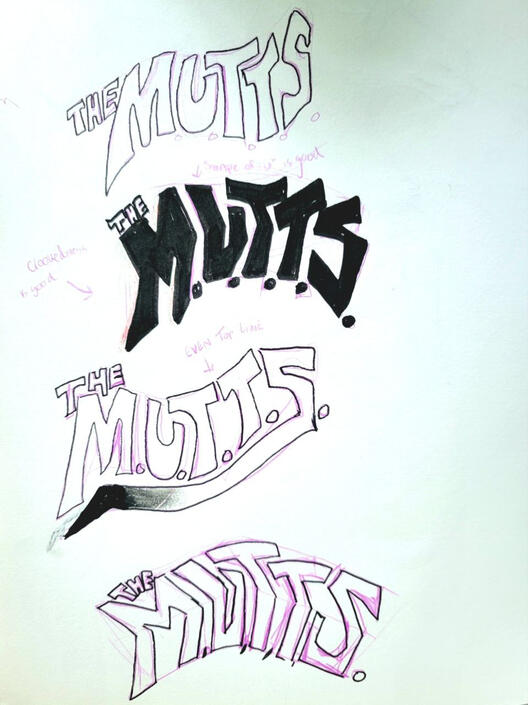 THE M.U.T.T.S.
↓ Shape of "U" is good
THE M.U.T.T.S.
Crookedness
is good
EVEN TOP LINE
THE M.U.T.T.S.
THE M.U.T.T.S.